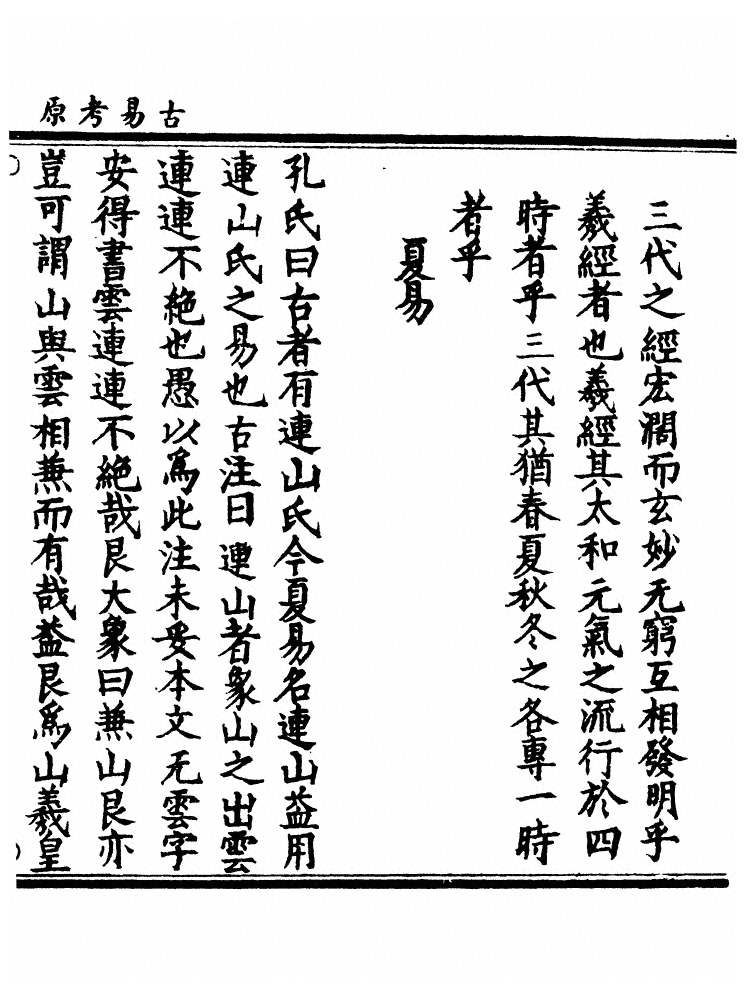 古易考原
三代之經宏濶而玄妙无窮互相發明乎
羲經者也羲經其太和元氣之流行於四
時者乎三代其猶春夏秋冬之各專一時
者乎
夏易
孔氏曰古者有連山氏今夏易名連山葢用
連山氏之易也古注曰連山者象山之出雲
連連不絶也愚以爲此注未妥本文无雲字
安得書雲連連不絶哉艮大象曰兼山艮亦
豈可謂山與雲相兼而有哉葢艮爲山羲皇